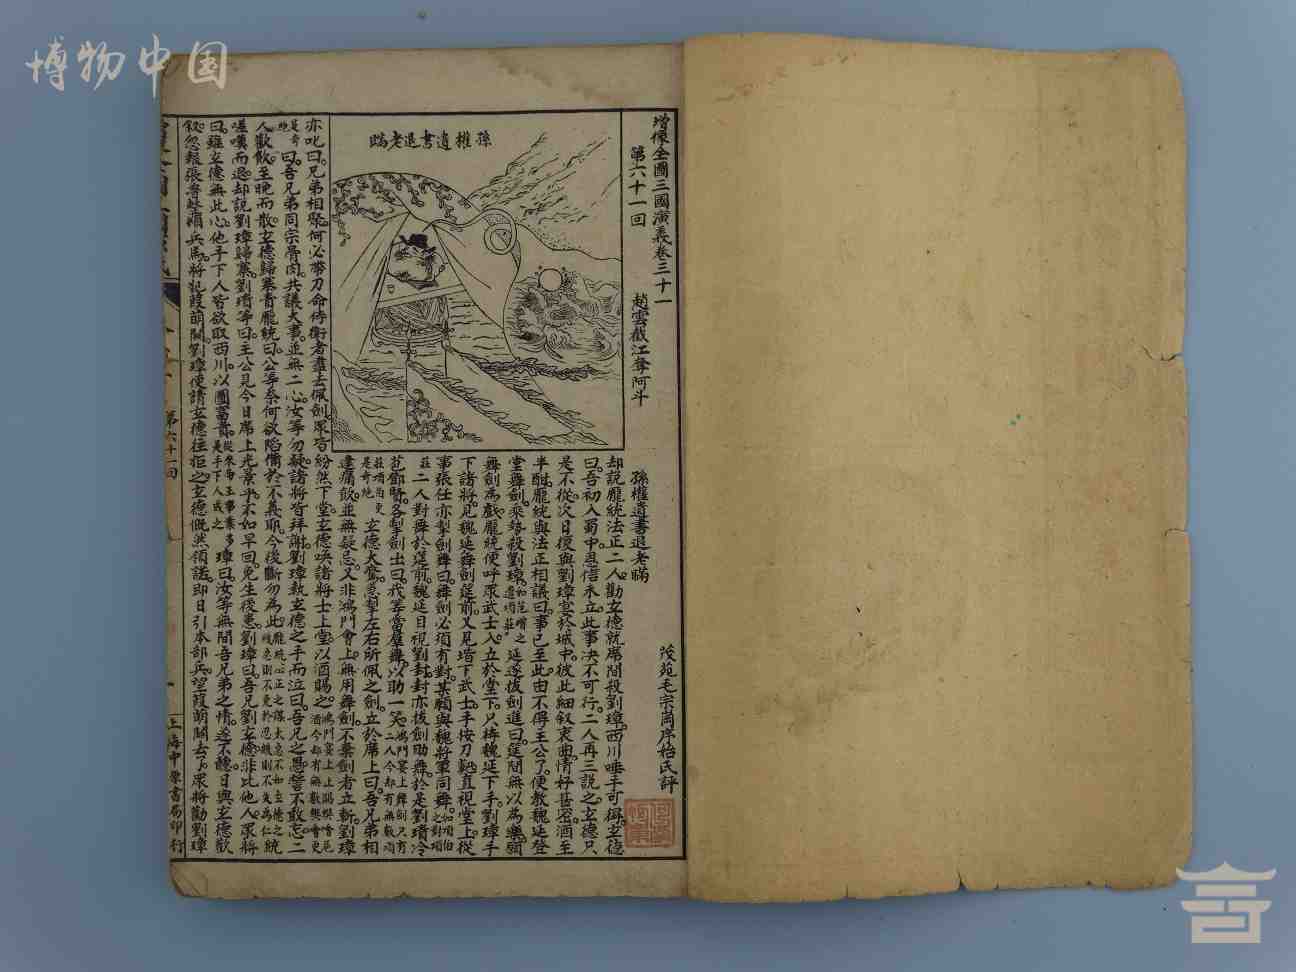 博物中国
增像全圖三國演義卷三十一
第六十一回
趙雲截江奪阿斗
孫權遺書退老瞞
茂苑毛宗崗序始氏評
孫權遺書退老瞞
却說龐統法正二人勸玄德就席間殺劉璋。西川唾手可得。玄德
曰。吾初入蜀中。恩信未立。此事决不可行。二人再三說之。玄德只
是不從。次日復與劉璋宴於城中。彼此細叙衷曲。情好甚密。酒至
半酣。龐統與法正相議曰。事已至此。由不得主公了。便教魏延登
堂舞劍。乘勢殺劉璋。延遂拔劍進曰。筵間無以為樂。願
舞劍為戲。龐統便呼眾武士入。立於堂下。只待魏延下手。劉璋手
下諸將。見魏延舞劍筵前。又見堦下武士。手按刀靶。直視堂上。從
事張任亦掣劍舞曰。舞劍必須有對。某願與魏將軍同舞。
二人對舞於筵前。魏延目視劉封。封亦拔劍助舞。於是劉璝冷
苞鄧賢各掣劍出曰。我等當羣舞。以助一笑。
玄德大驚。急掣左右所佩之劍。立於席上曰。吾兄弟相
逢痛飲。並無疑忌。又非鴻門會上。無用舞劍。不棄劍者立斬。劉璋
亦叱曰。兄弟相聚。何必帶刀。命侍衛者盡去佩劍。眾皆紛然下堂。玄德喚諸將士上堂。以酒賜之。
曰。吾兄弟同宗骨肉。共議大事。並無二心。汝等勿疑。諸將皆拜謝。劉璋執玄德之手而泣曰。吾兄之恩。誓不敢忘。二
人歡飲至晚而散。玄德歸寨。責龐統曰。公等奈何欲陷備於不義耶。今後斷勿為此。統
嗟嘆而退。却說劉璋歸寨。劉璝等曰。主公見今日席上光景乎。不如早回。免生後患。劉璋曰。吾兄劉玄德。非比他人。眾將
曰。雖玄德無此心。他手下人皆欲取西川。以圖富貴。璋曰。汝等無間吾兄弟之情。遂不聽。日與玄德歡
叙。忽報張魯整頓兵馬。將犯葭萌關。劉璋便請玄德往拒之。玄德慨然領諾。即日引本部兵。望葭萌關去了。眾將勸劉璋
第六十一回
上海中原書局印行